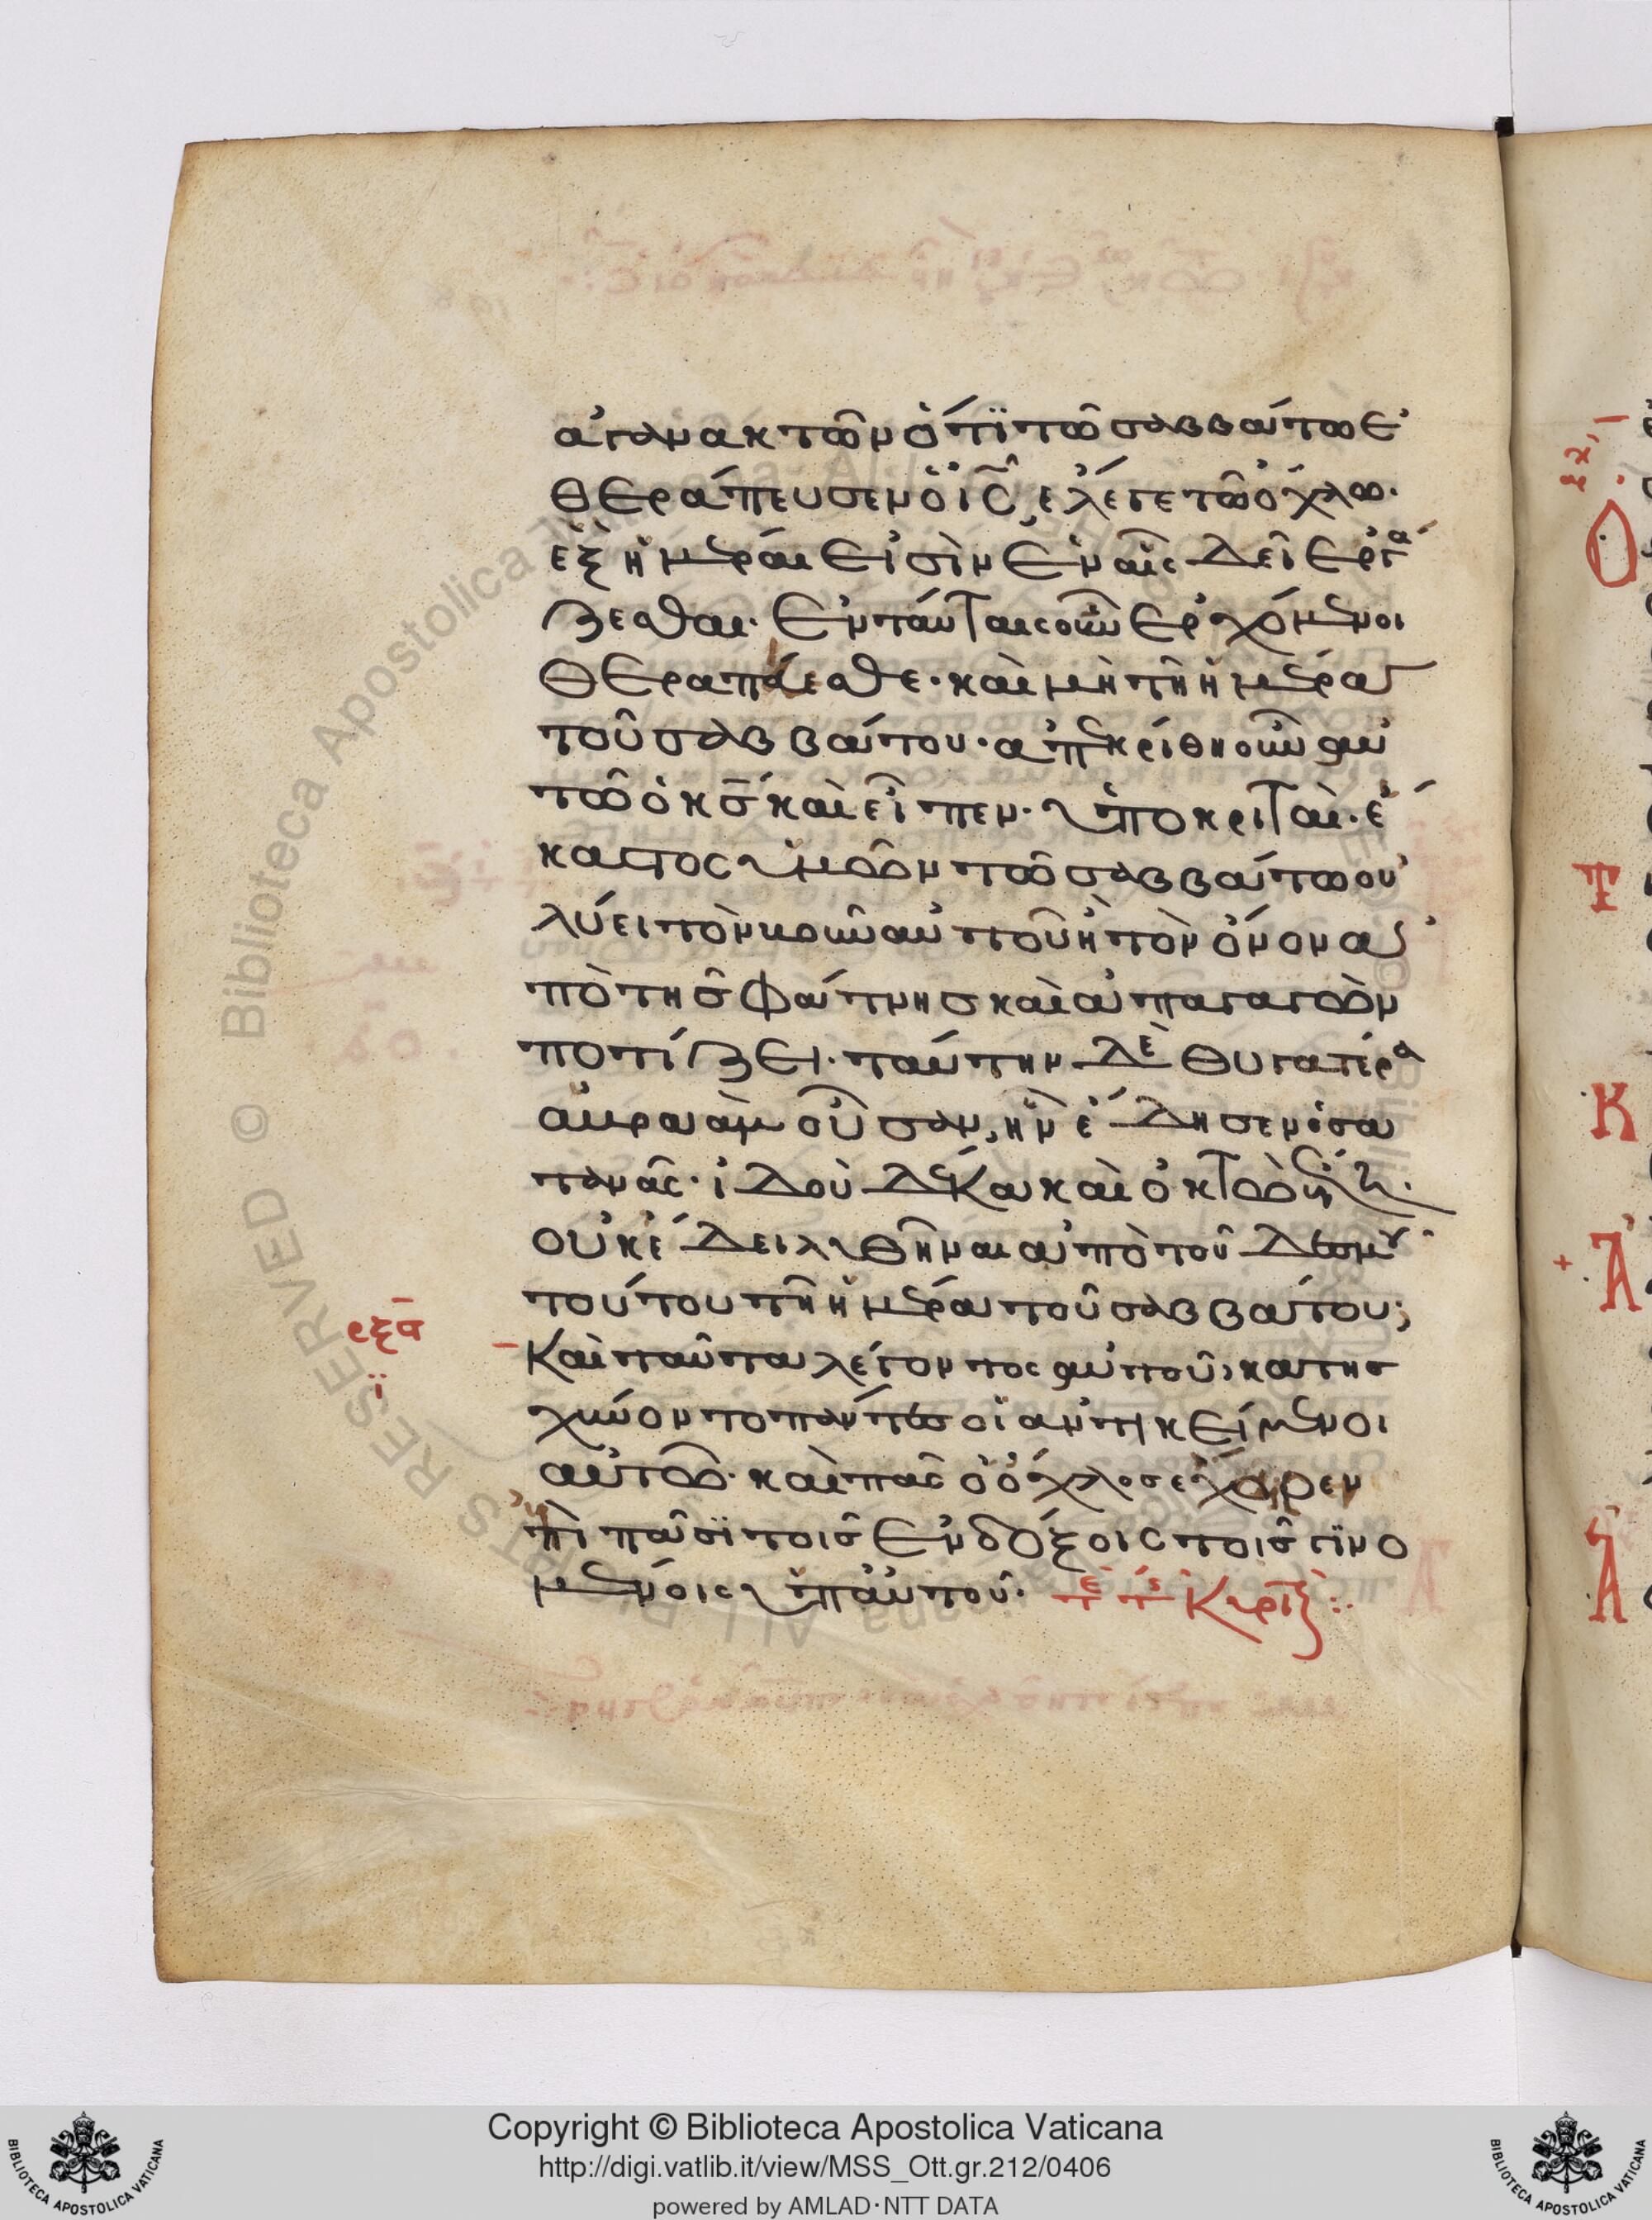 ἀγανακτῶν ὅτϊ τῶ σαββάτω ἐ
θεράπευσεν ὁ ἰς̅, ἔλεγε τῶ ὄχλω·
ἓξ ἡμέραι εἰσὶν ἐν αἷς δεῖ ἐργά
ζεσθαι· ἐν ταύταις οὖν ἐρχόμενοι
θεραπεύεσθε· καὶ μὴ τῆ ἡμέρα
τοῦ σαββάτου· ἀπεκρίθη οὖν αὐ
τῶ ὁ κς̅ καὶ εἶπεν· ὑποκριταὶ· ἕ
καστος ὑμῶν τῶ σαββάτω οὐ
λύει τὸν βοῦν αὐτοῦ ἢ τὸν ὄνον ἀ
πὸ τῆς φάτνης καὶ ἀπαγαγὼν
ποτίζει· ταύτην δὲ θυγατέρα
ἀβραὰμ οὖσαν, ἣν ἔδησεν ὁ σα
τανᾶς· ἰδοὺ δέκα καὶ ὀκτὼ ἔτη·
οὐκ ἔδει λυθῆναι ἀπὸ τοῦ δεσμοῦ
τούτου τῆ ἡμέρα τοῦ σαββάτου;
ρξα̅
Καὶ ταῦτα λέγοντος αὐτοῦ, κατης
ϊ
χύνοντο πάντες οἱ ἀντικείμενοι
αὐτῶ· καὶ πᾶς ὁ ὄχλος ἔχαιρεν
ἐπὶ πᾶσϊ τοῖς ἐνδόξοις τοῖς γϊνο
μένοις ὑπ' αὐτοῦ·
Copyright © Biblioteca Apostolica Vaticana
http://digi.vatlib.it/view/MSS_Ott.gr.212/0406
powered by AMLAD·NTT DATA
BIBLIOTECA APOSTOLICA VATICANA
BIBLIOTECA APOSTOLICA VATICANA